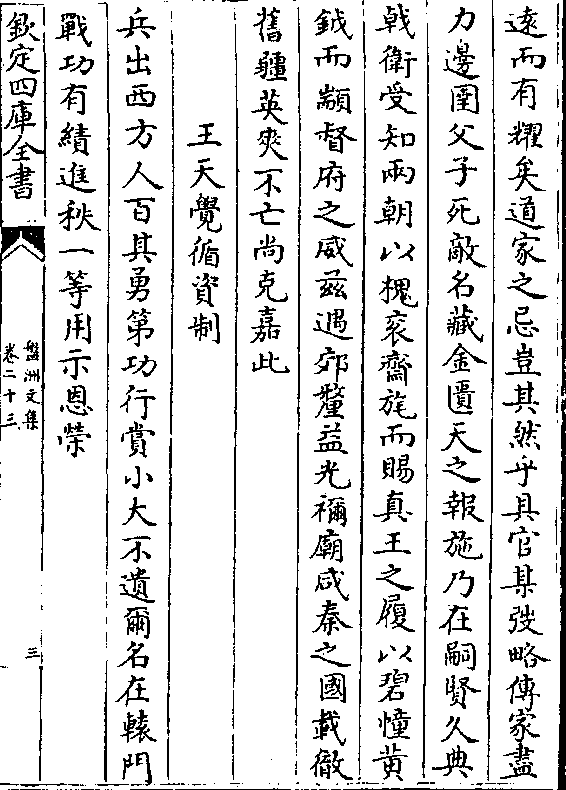 遠而有耀矣道家之忌豈其然乎具官某弢略傳家盡
力邊圉父子死敵名藏金匱天之報施乃在嗣賢久典
㦸衛受知兩朝以槐衮齋旄而賜真王之履以碧幢黄
鉞而顓督府之威兹遇郊釐益光禰廟咸秦之國載徹
舊疆英爽不亡尚克嘉此
王天覺循資制
兵出西方人百其勇第功行賞小大不遺爾名在轅門
戰功有績進秩一等用示恩榮
欽定四庫全書
盤洲文集
卷二十三
三